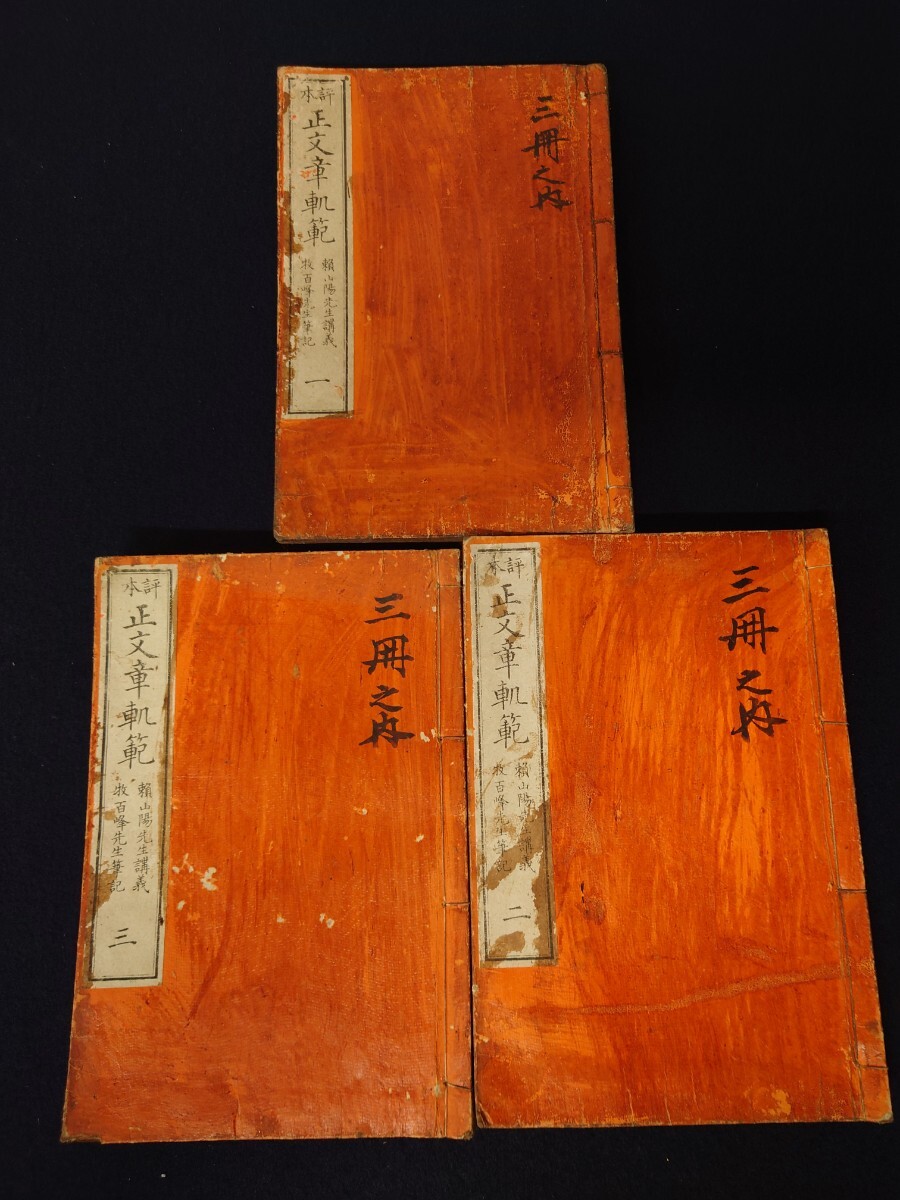 三冊之内
評本
正文章軌範
賴山陽先生講義
牧百峰先生筆記
一
三冊之内
評本
正文章軌範
賴山陽先生講義
牧百峰先生筆記
二
三冊之内
評本
正文章軌範
賴山陽先生講義
牧百峰先生筆記
三